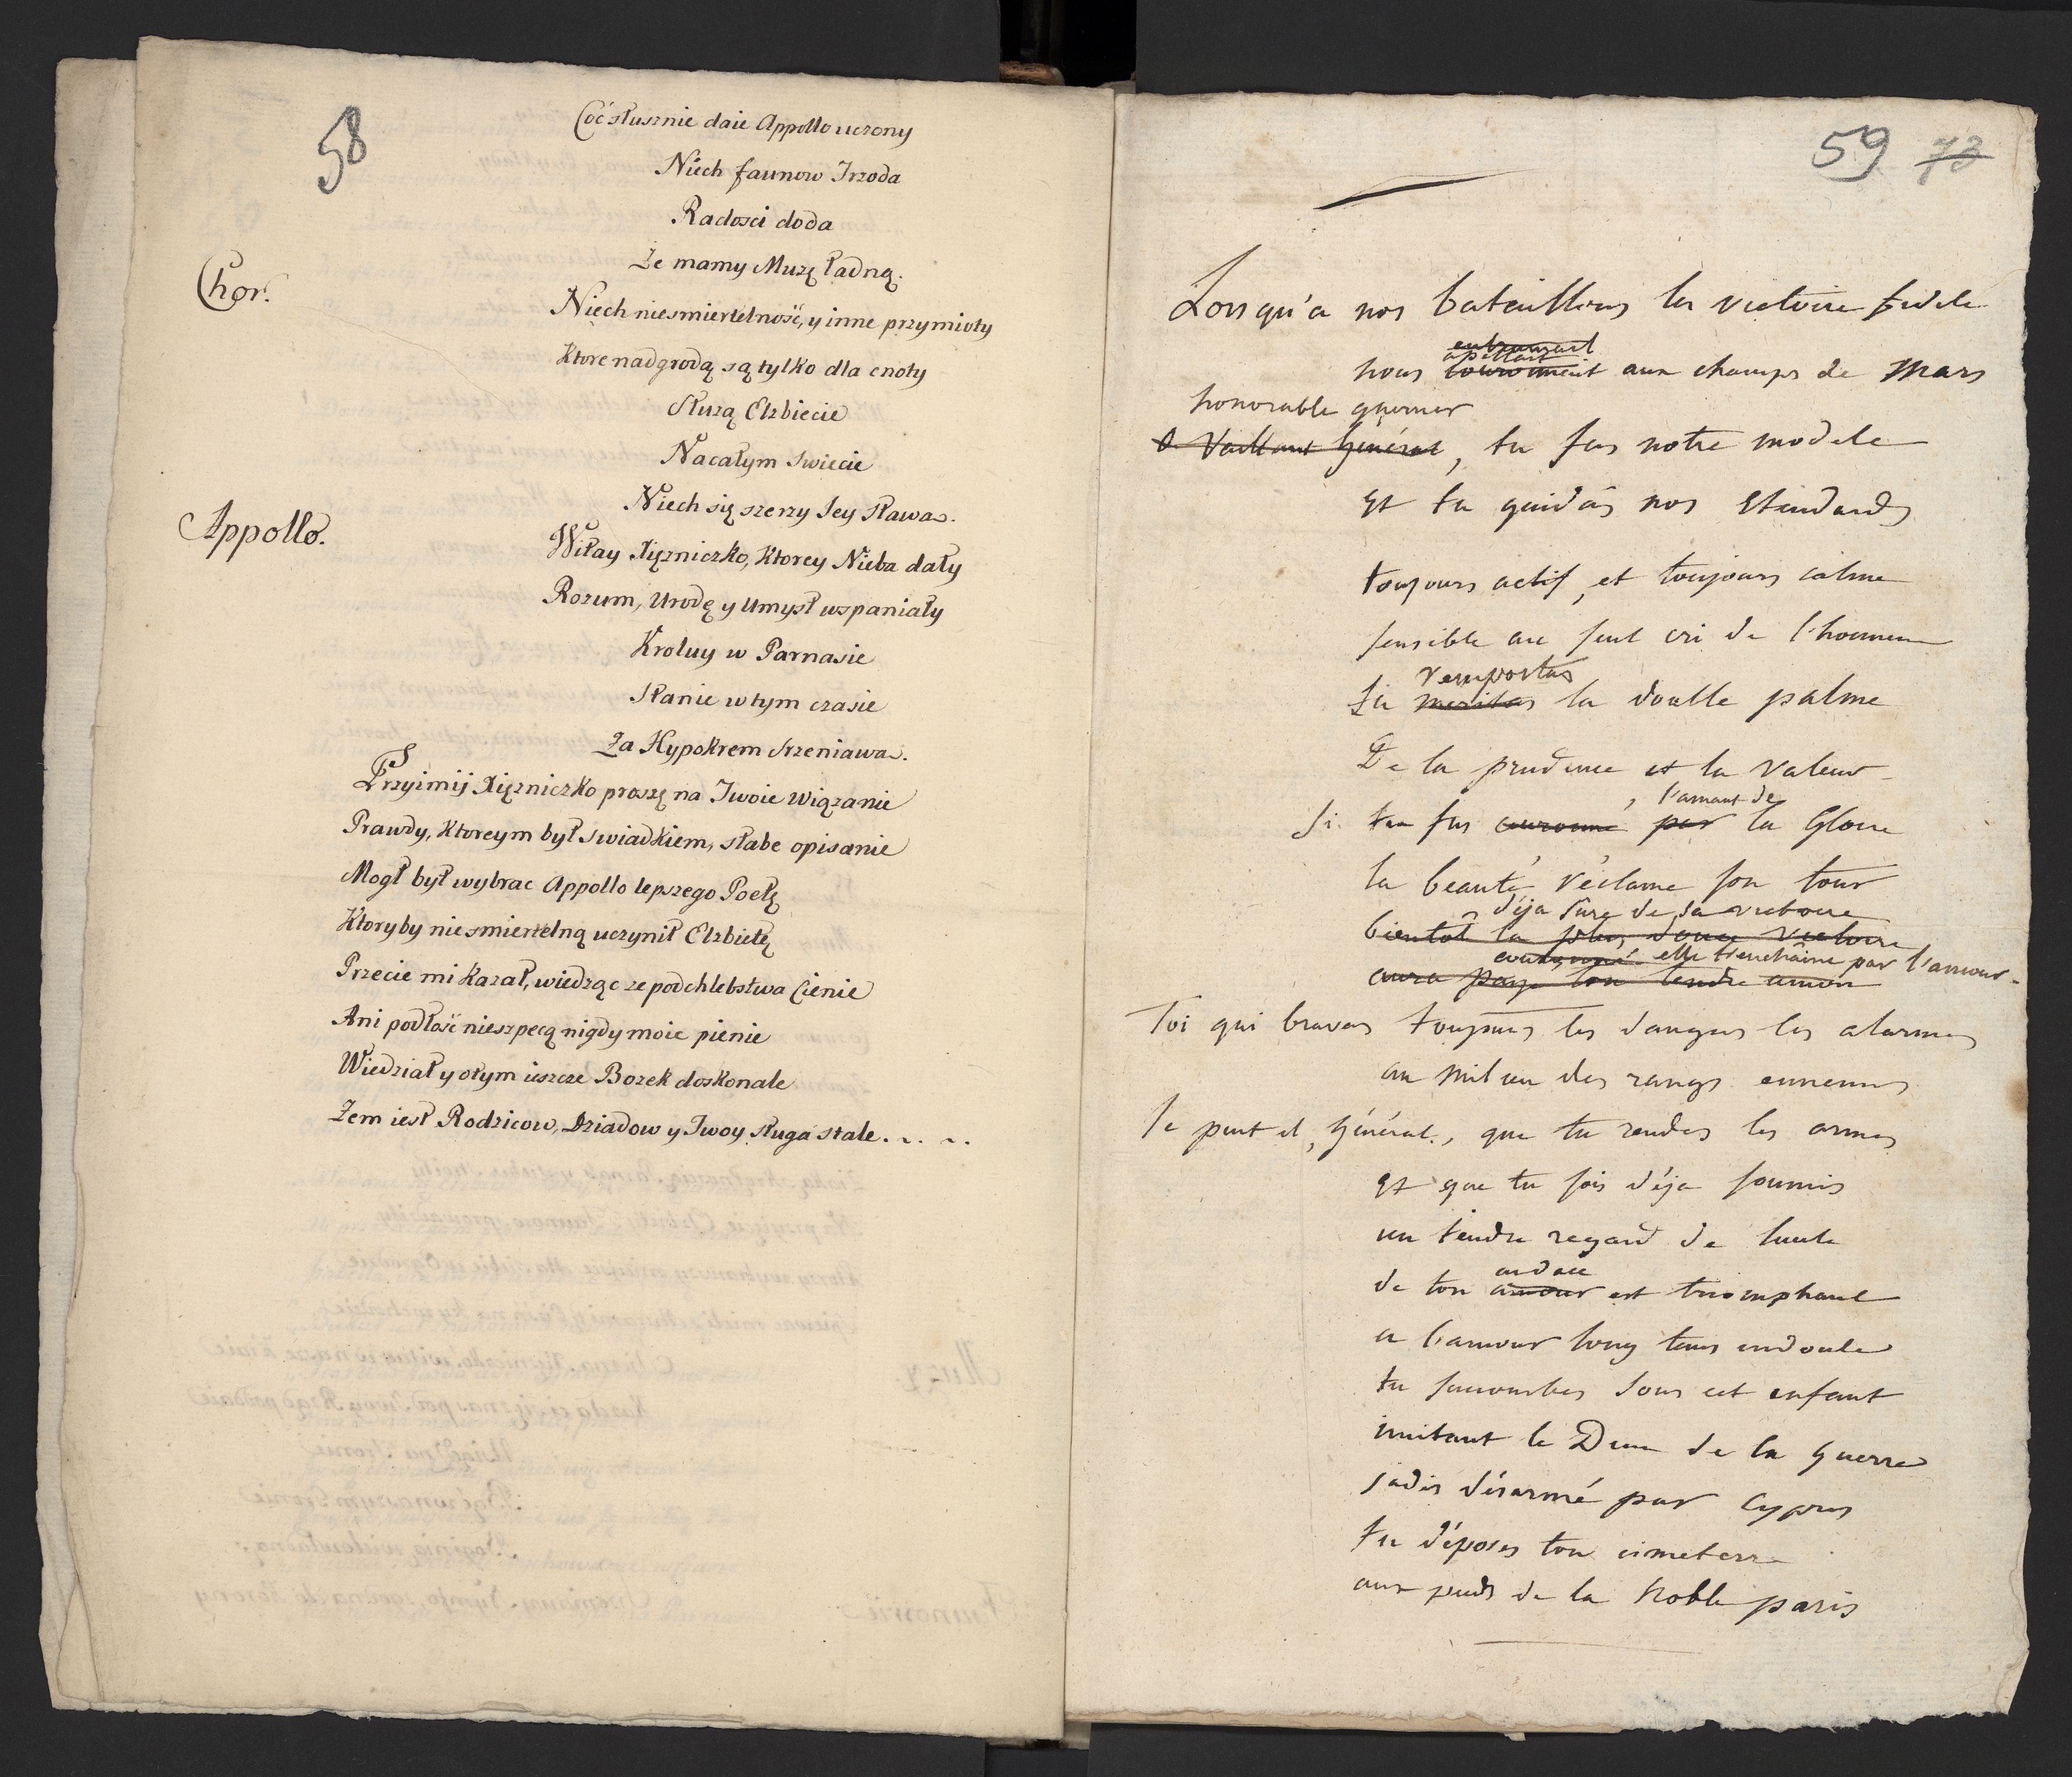 58
Coć słusznie daie Appollo uczony
Niech faunow Trzoda
Radosci doda
Ze mamy Muzę ładną.
Chor.
Niech niesmiertelność, y inne przymioty
Ktore nadgrodą są tylko dla cnoty
Służą Elzbiecie
Nacałym swiecie
Niech się szerzy Jey sława.
Appollo.
Witay Xiężniczko, Ktorey Nieba dały
Rozum, Urodę y Umysł wspaniały
Kroluy w Parnasie
Stanie w tym czasie
Za Hypokrem Srzeniawa.
Przyimij Xiężniczko proszę na Twoie Wiązanie
Prawdy, Ktoreym był swiadkiem, słabe opisanie
Mogł był wybrac Appollo lepszego Poetę
Ktoryby niesmiertelną uczynił Elzbietę
Przecie mi Kazał, wiedząc ze podchlebstwa Cienie
Ani podłość nieszpecą nigdy moie pienie
Wiedział y otym ieszcze Bozek doskonale
Zem iest Rodzicow, Dziadow y Twoy sługa stale. . . .
59 73
Lorsqu'a nos bataillons la victoire fidele
apellait
nous aux champs de Mars
honorable guerrier
O Vaillant Général, tu fus notre modele
Et tu guidas nos Etendards
toujours actif, et toujours calme
sensible au seul cri de l'honneur
remportas
tu meritas la double palme
De la prudence et la Valeur
, l'amant de
Si tu fus couronné par la Gloire
la beauté réclame son tour
déja sûre de sa victoire
bientot la plus douce victoire
couronné elle t'enchaîne par l'amour.
aura payé ton tendre amour
Toi qui bravas toujours les dangers les alarmes
au milieu des rangs ennemis
Se peut il, Général, que tu rendes les armes
Et que tu sois déja soumis
un tendre regard de
audace
de ton amour est triomphant
a l'amour long tems indocile
tu succombes sous cet enfant
imitant le Dieu de la guerre
jadis désarmé par Cypris
tu déposes ton cimeterre
aux pieds de la Noble paris